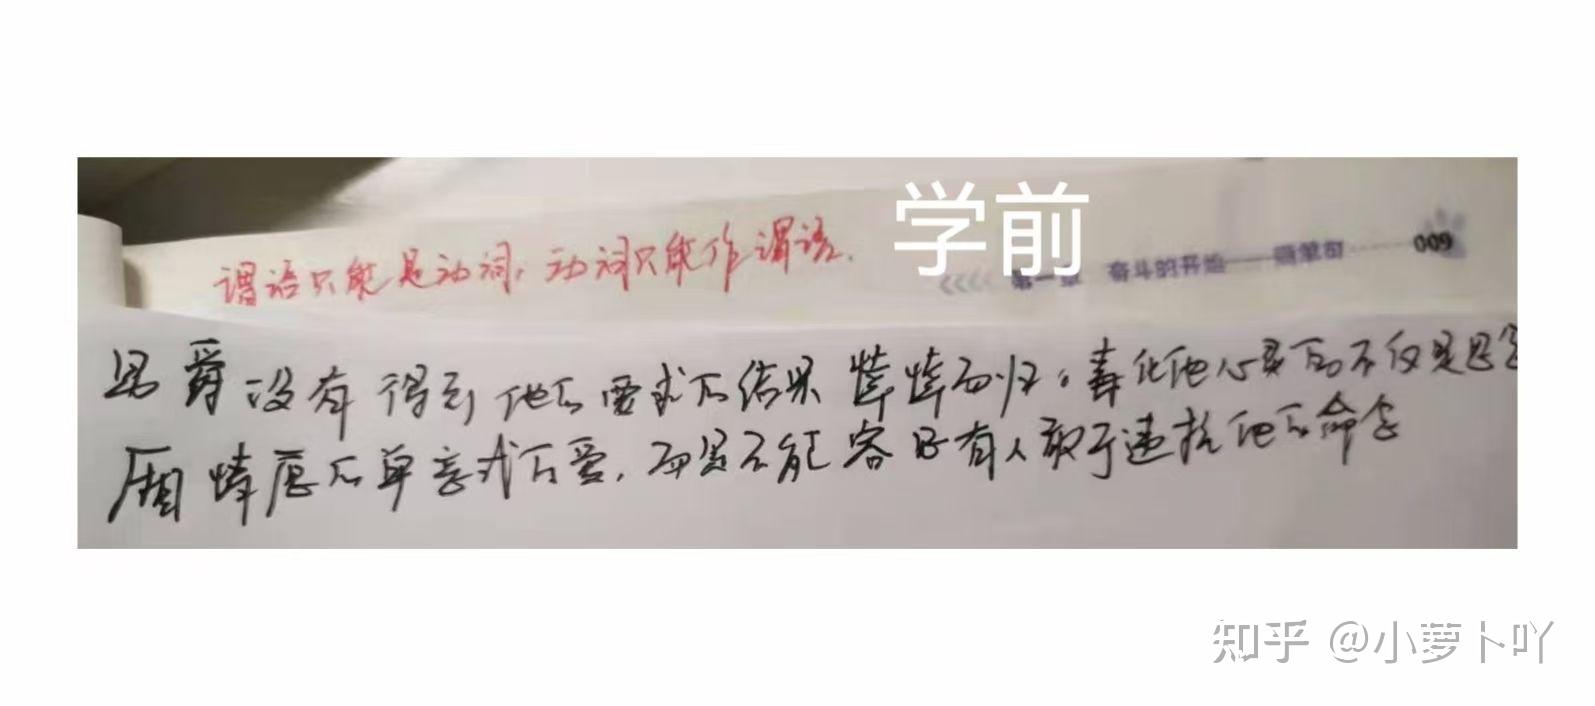 学前
谓语只能是动词，动词只能作谓语.
第一章 奋斗的开始——简单句 009
男爵没有得到他所要求的结果 悻悻而归。毒化他心灵的不仅是
厢情愿的单意式的爱，而是不能容忍有人敢于违抗他的命令
知乎 @小萝卜吖